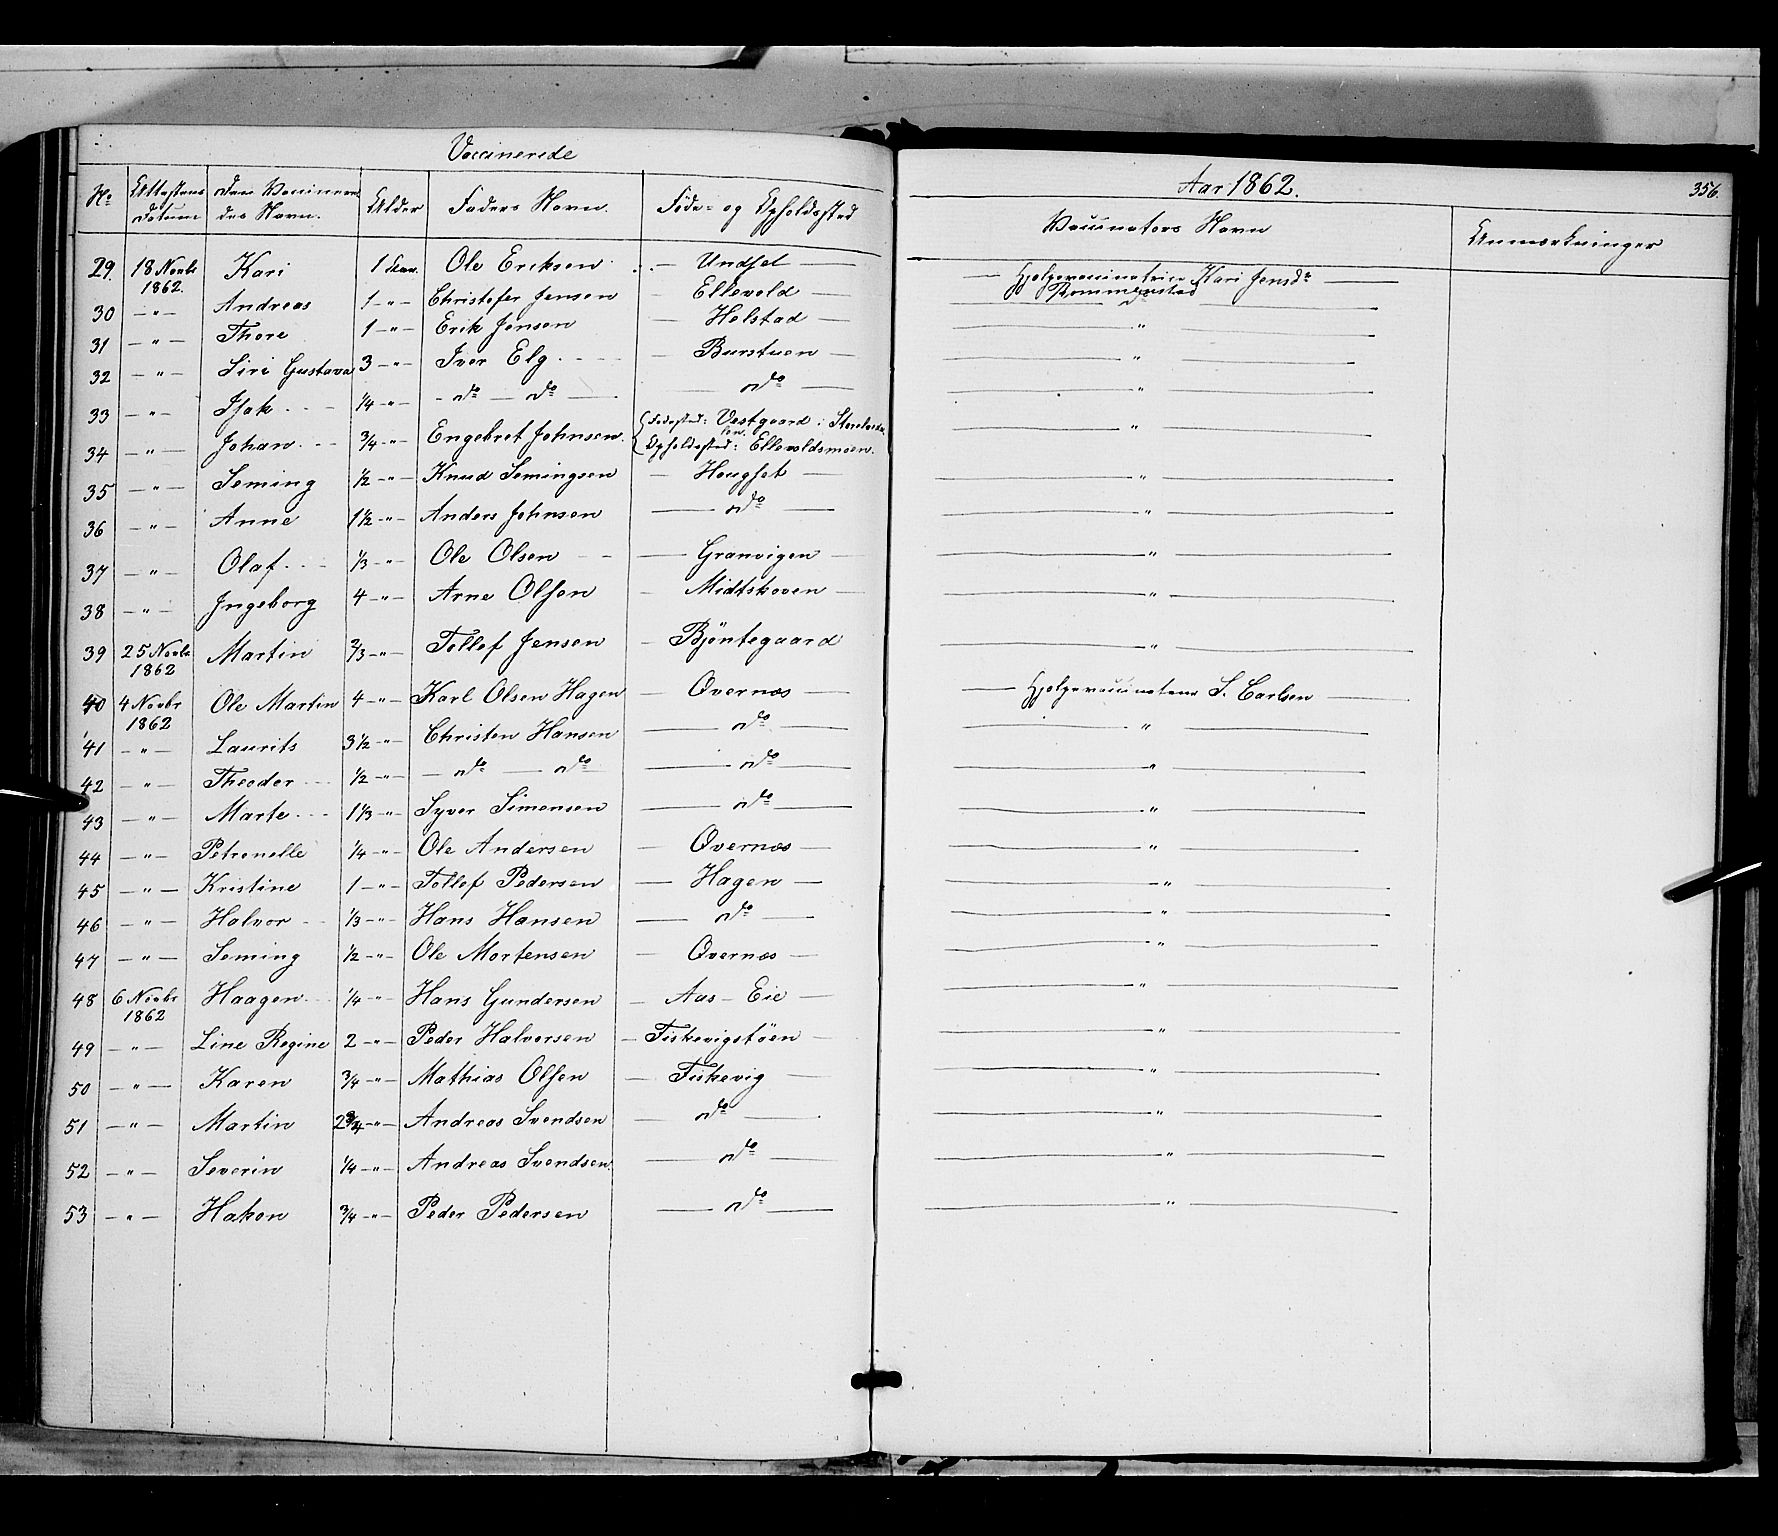 Vaccinerede
Aar 1862.
356.
No Attestens Datum den Vaccineredes Navn. Alder Faders Navn. Føde- og Opholdssted Vaccinators Navn Anmærkninger
29. 18 Novbr 1862. Kari 1 Ole Eriksen — Undset — Hjelpevaccinatrice Kari Jensdr
30 — " — Andreas 1 — " — Christofer Jensen — Ellevold — "
31 — " — Thore 1 — " — Erik Jensen — Holstad — "
32 — " — Siri Gustava 3 — " — Iver Elg — Burstuen — "
33 — " — Isak 1/4 — " — do — do — do — "
34 — " — Johan 3/4 — " — Engebret Johnsen. Fødested: Vestgaard i Storelvdalen. Opholdssted: Ellevoldsmoen. "
35 — " — Seming 1/2 — " — Knud Semingsen — Hougset — "
36 — " — Anne 1 1/2 — " — Anders Johnsen — do — "
37 — " — Olaf 1/3 — " — Ole Olsen — Granvigen — "
38 — " — Ingeborg 4 — " — Arne Olsen — Midtskoven — "
39 25 Novbr 1862 Martin 2/3 — " — Tollef Jensen — Bjøntegaard — "
40 4 Novbr 1862 Ole Martin 4 — " — Karl Olsen Hagen — Øvernæs — Hjelpevaccinateur S. Carlsen
41 — " — Laurits 3 1/2 — " — Christen Hansen — do — "
42 — " — Theodor 1/2 — " — do — do — do — "
43 — " — Marte 1 1/3 — " — Syver Simensen — do — "
44 — " — Petronelle 1/4 — " — Ole Andersen — Øvernæs — "
45 — " — Kristine 1 — " — Tollef Pedersen — Hagen — "
46 — " — Halvor 1/3 — " — Hans Hansen — do — "
47 — " — Seming 1/2 — " — Ole Mortensen — Øvernæs — "
48 6 Novbr 1862 Haagen 1/4 — " — Hans Gundersen — Aas-Eie — "
49 — " — Line Regine 2 — " — Peder Halvorsen — Fiskevigstøen — "
50 — " — Karen 3/4 — " — Mathias Olsen — Fiskevig — "
51 — " — Martin 2 3/4 — " — Andreas Svendsen — do — "
52 — " — Severin 1/4 — " — Andreas Svendsen. — do — "
53 — " — Hakon 3/4 — " — Peder Pedersen — do — "